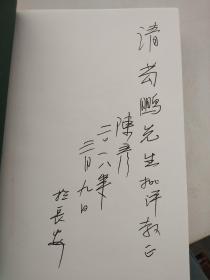 请芳鹏先生批评教正
陳彦
二〇一八年
三月九日
於長安